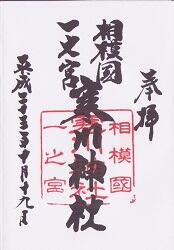 奉拝
相模國
一之宮
寒川神社
平成二十三年十月十九日
相模國
寒川神社
一之宮